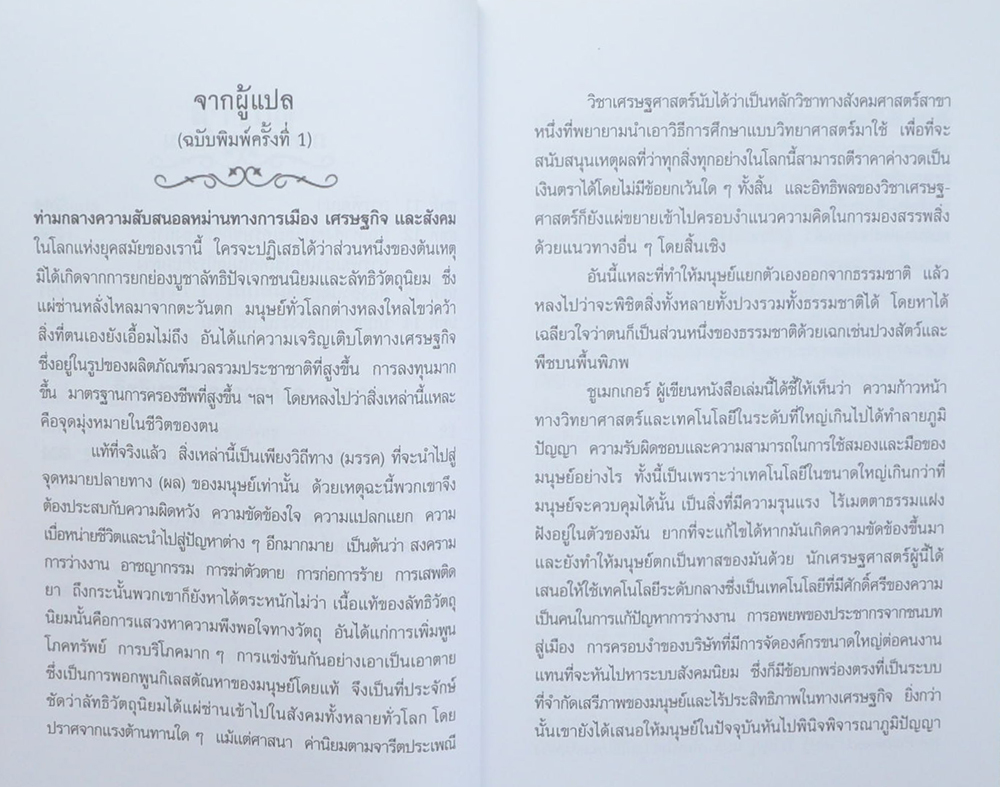 จากผู้แปล
(ฉบับพิมพ์ครั้งที่ 1)
ท่ามกลางความสับสนอลหม่านทางการเมือง เศรษฐกิจ และสังคม
ในโลกแห่งยุคสมัยของเรานี้ ใครจะปฏิเสธได้ว่าส่วนหนึ่งของต้นเหตุ
มิได้เกิดจากการยกย่องบูชาลัทธิปัจเจกชนนิยมและลัทธิวัตถุนิยม ซึ่ง
แผ่ซ่านหลั่งไหลมาจากตะวันตก มนุษย์ทั่วโลกต่างหลงใหลไขว่คว้า
สิ่งที่ตนเองยังเอื้อมไม่ถึง อันได้แก่ความเจริญเติบโตทางเศรษฐกิจ
ซึ่งอยู่ในรูปของผลิตภัณฑ์มวลรวมประชาชาติที่สูงขึ้น การลงทุนมาก
ขึ้น มาตรฐานการครองชีพที่สูงขึ้น ฯลฯ โดยหลงไปว่าสิ่งเหล่านี้แหละ
คือจุดมุ่งหมายในชีวิตของตน
แท้ที่จริงแล้ว สิ่งเหล่านี้เป็นเพียงวิถีทาง (มรรค) ที่จะนำไปสู่
จุดหมายปลายทาง (ผล) ของมนุษย์เท่านั้น ด้วยเหตุฉะนี้พวกเขาจึง
ต้องประสบกับความผิดหวัง ความขัดข้องใจ ความแปลกแยก ความ
เบื่อหน่ายชีวิตและนำไปสู่ปัญหาต่าง ๆ อีกมากมาย เป็นต้นว่า สงคราม
การว่างงาน อาชญากรรม การฆ่าตัวตาย การก่อการร้าย การเสพติด
ยา ถึงกระนั้นพวกเขาก็ยังหาได้ตระหนักไม่ว่า เนื้อแท้ของลัทธิวัตถุ
นิยมนั้นคือการแสวงหาความพึงพอใจทางวัตถุ อันได้แก่การเพิ่มพูน
โภคทรัพย์ การบริโภคมาก ๆ การแข่งขันกันอย่างเอาเป็นเอาตาย
ซึ่งเป็นการพอกพูนกิเลสตัณหาของมนุษย์โดยแท้ จึงเป็นที่ประจักษ์
ชัดว่าลัทธิวัตถุนิยมได้แผ่ซ่านเข้าไปในสังคมทั้งหลายทั่วโลก โดย
ปราศจากแรงต้านทานใด ๆ แม้แต่ศาสนา ค่านิยมตามจารีตประเพณี
วิชาเศรษฐศาสตร์นับได้ว่าเป็นหลักวิชาทางสังคมศาสตร์สาขา
หนึ่งที่พยายามนำเอาวิธีการศึกษาแบบวิทยาศาสตร์มาใช้ เพื่อที่จะ
สนับสนุนเหตุผลที่ว่าทุกสิ่งทุกอย่างในโลกนี้สามารถตีราคาค่างวดเป็น
เงินตราได้โดยไม่มีข้อยกเว้นใด ๆ ทั้งสิ้น และอิทธิพลของวิชาเศรษฐ-
ศาสตร์ก็ยังแผ่ขยายเข้าไปครอบงำแนวความคิดในการมองสรรพสิ่ง
ด้วยแนวทางอื่น ๆ โดยสิ้นเชิง
อันนี้แหละที่ทำให้มนุษย์แยกตัวเองออกจากธรรมชาติ แล้ว
หลงไปว่าจะพิชิตสิ่งทั้งหลายทั้งปวงรวมทั้งธรรมชาติได้ โดยหาได้
เฉลียวใจว่าตนก็เป็นส่วนหนึ่งของธรรมชาติด้วยเฉกเช่นปวงสัตว์และ
พืชบนพื้นพิภพ
ชูเมกเกอร์ ผู้เขียนหนังสือเล่มนี้ได้ชี้ให้เห็นว่า ความก้าวหน้า
ทางวิทยาศาสตร์และเทคโนโลยีในระดับที่ใหญ่เกินไปได้ทำลายภูมิ
ปัญญา ความรับผิดชอบและความสามารถในการใช้สมองและมือของ
มนุษย์อย่างไร ทั้งนี้เป็นเพราะว่าเทคโนโลยีในขนาดใหญ่เกินกว่าที่
มนุษย์จะควบคุมได้นั้น เป็นสิ่งที่มีความรุนแรง ไร้เมตตาธรรมแฝง
ฝังอยู่ในตัวของมัน ยากที่จะแก้ไขได้หากมันเกิดความขัดข้องขึ้นมา
และยังทำให้มนุษย์ตกเป็นทาสของมันด้วย นักเศรษฐศาสตร์ผู้นี้ได้
เสนอให้ใช้เทคโนโลยีระดับกลางซึ่งเป็นเทคโนโลยีที่มีศักดิ์ศรีของความ
เป็นคนในการแก้ปัญหาการว่างงาน การอพยพของประชากรจากชนบท
สู่เมือง การครอบงำของบริษัทที่มีการจัดองค์กรขนาดใหญ่ต่อคนงาน
แทนที่จะหันไปหาระบบสังคมนิยม ซึ่งก็มีข้อบกพร่องตรงที่เป็นระบบ
ที่จำกัดเสรีภาพของมนุษย์และไร้ประสิทธิภาพในทางเศรษฐกิจ ยิ่งกว่า
นั้นเขายังได้เสนอให้มนุษย์ในปัจจุบันหันไปพินิจพิจารณาภูมิปัญญา